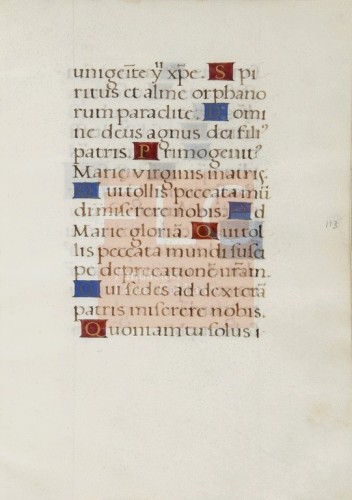 unigeīte yħ xp̄e. S pi
ritus et alme orphano
rum paraclite. D omi
ne deus agnus dei filiꝰ
patris. P rimogenitꝰ
Marie virginis matris.
Q ui tollis peccata mū
di miserere nobis. A d
Marie gloriā. Q ui tol
lis peccata mundi susci
pe deprecationē nr̄am.
Q ui sedes ad dexterā
patris miserere nobis.
Q uoniam tu solus s
113